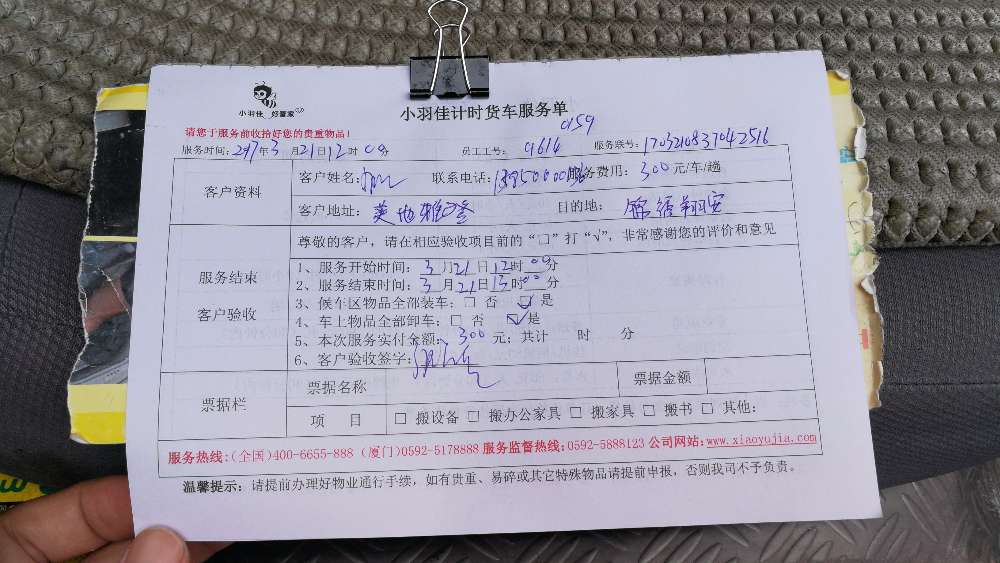 小羽佳 好管家
小羽佳计时货车服务单
请您于服务前收拾好您的贵重物品!
0159
服务时间:2017年3月21日12时00分 员工工号:9614 服务联号:1703210837042516
客户资料 客户姓名: 联系电话: 服务费用:300元/车/趟
客户地址: 目的地:
尊敬的客户,请在相应验收项目前的“□”打“√”,非常感谢您的评价和意见
服务结束
客户验收
1、服务开始时间:3月21日12时00分
2、服务结束时间:3月21日13时00分
3、候车区物品全部装车:□ 否 ☑ 是
4、车上物品全部卸车:□ 否 ☑ 是
5、本次服务实付金额:300元;共计 时 分
6、客户验收签字:
票据栏 票据名称 票据金额
项 目 □ 搬设备 □ 搬办公家具 □ 搬家具 □ 搬书 □ 其他:
服务热线:(全国)400-6655-888 (厦门)0592-5178888 服务监督热线:0592-5888123 公司网站:www.xiaoyujia.com
温馨提示:请提前办理好物业通行手续,如有贵重、易碎或其它特殊物品请提前申报,否则我司不予负责。